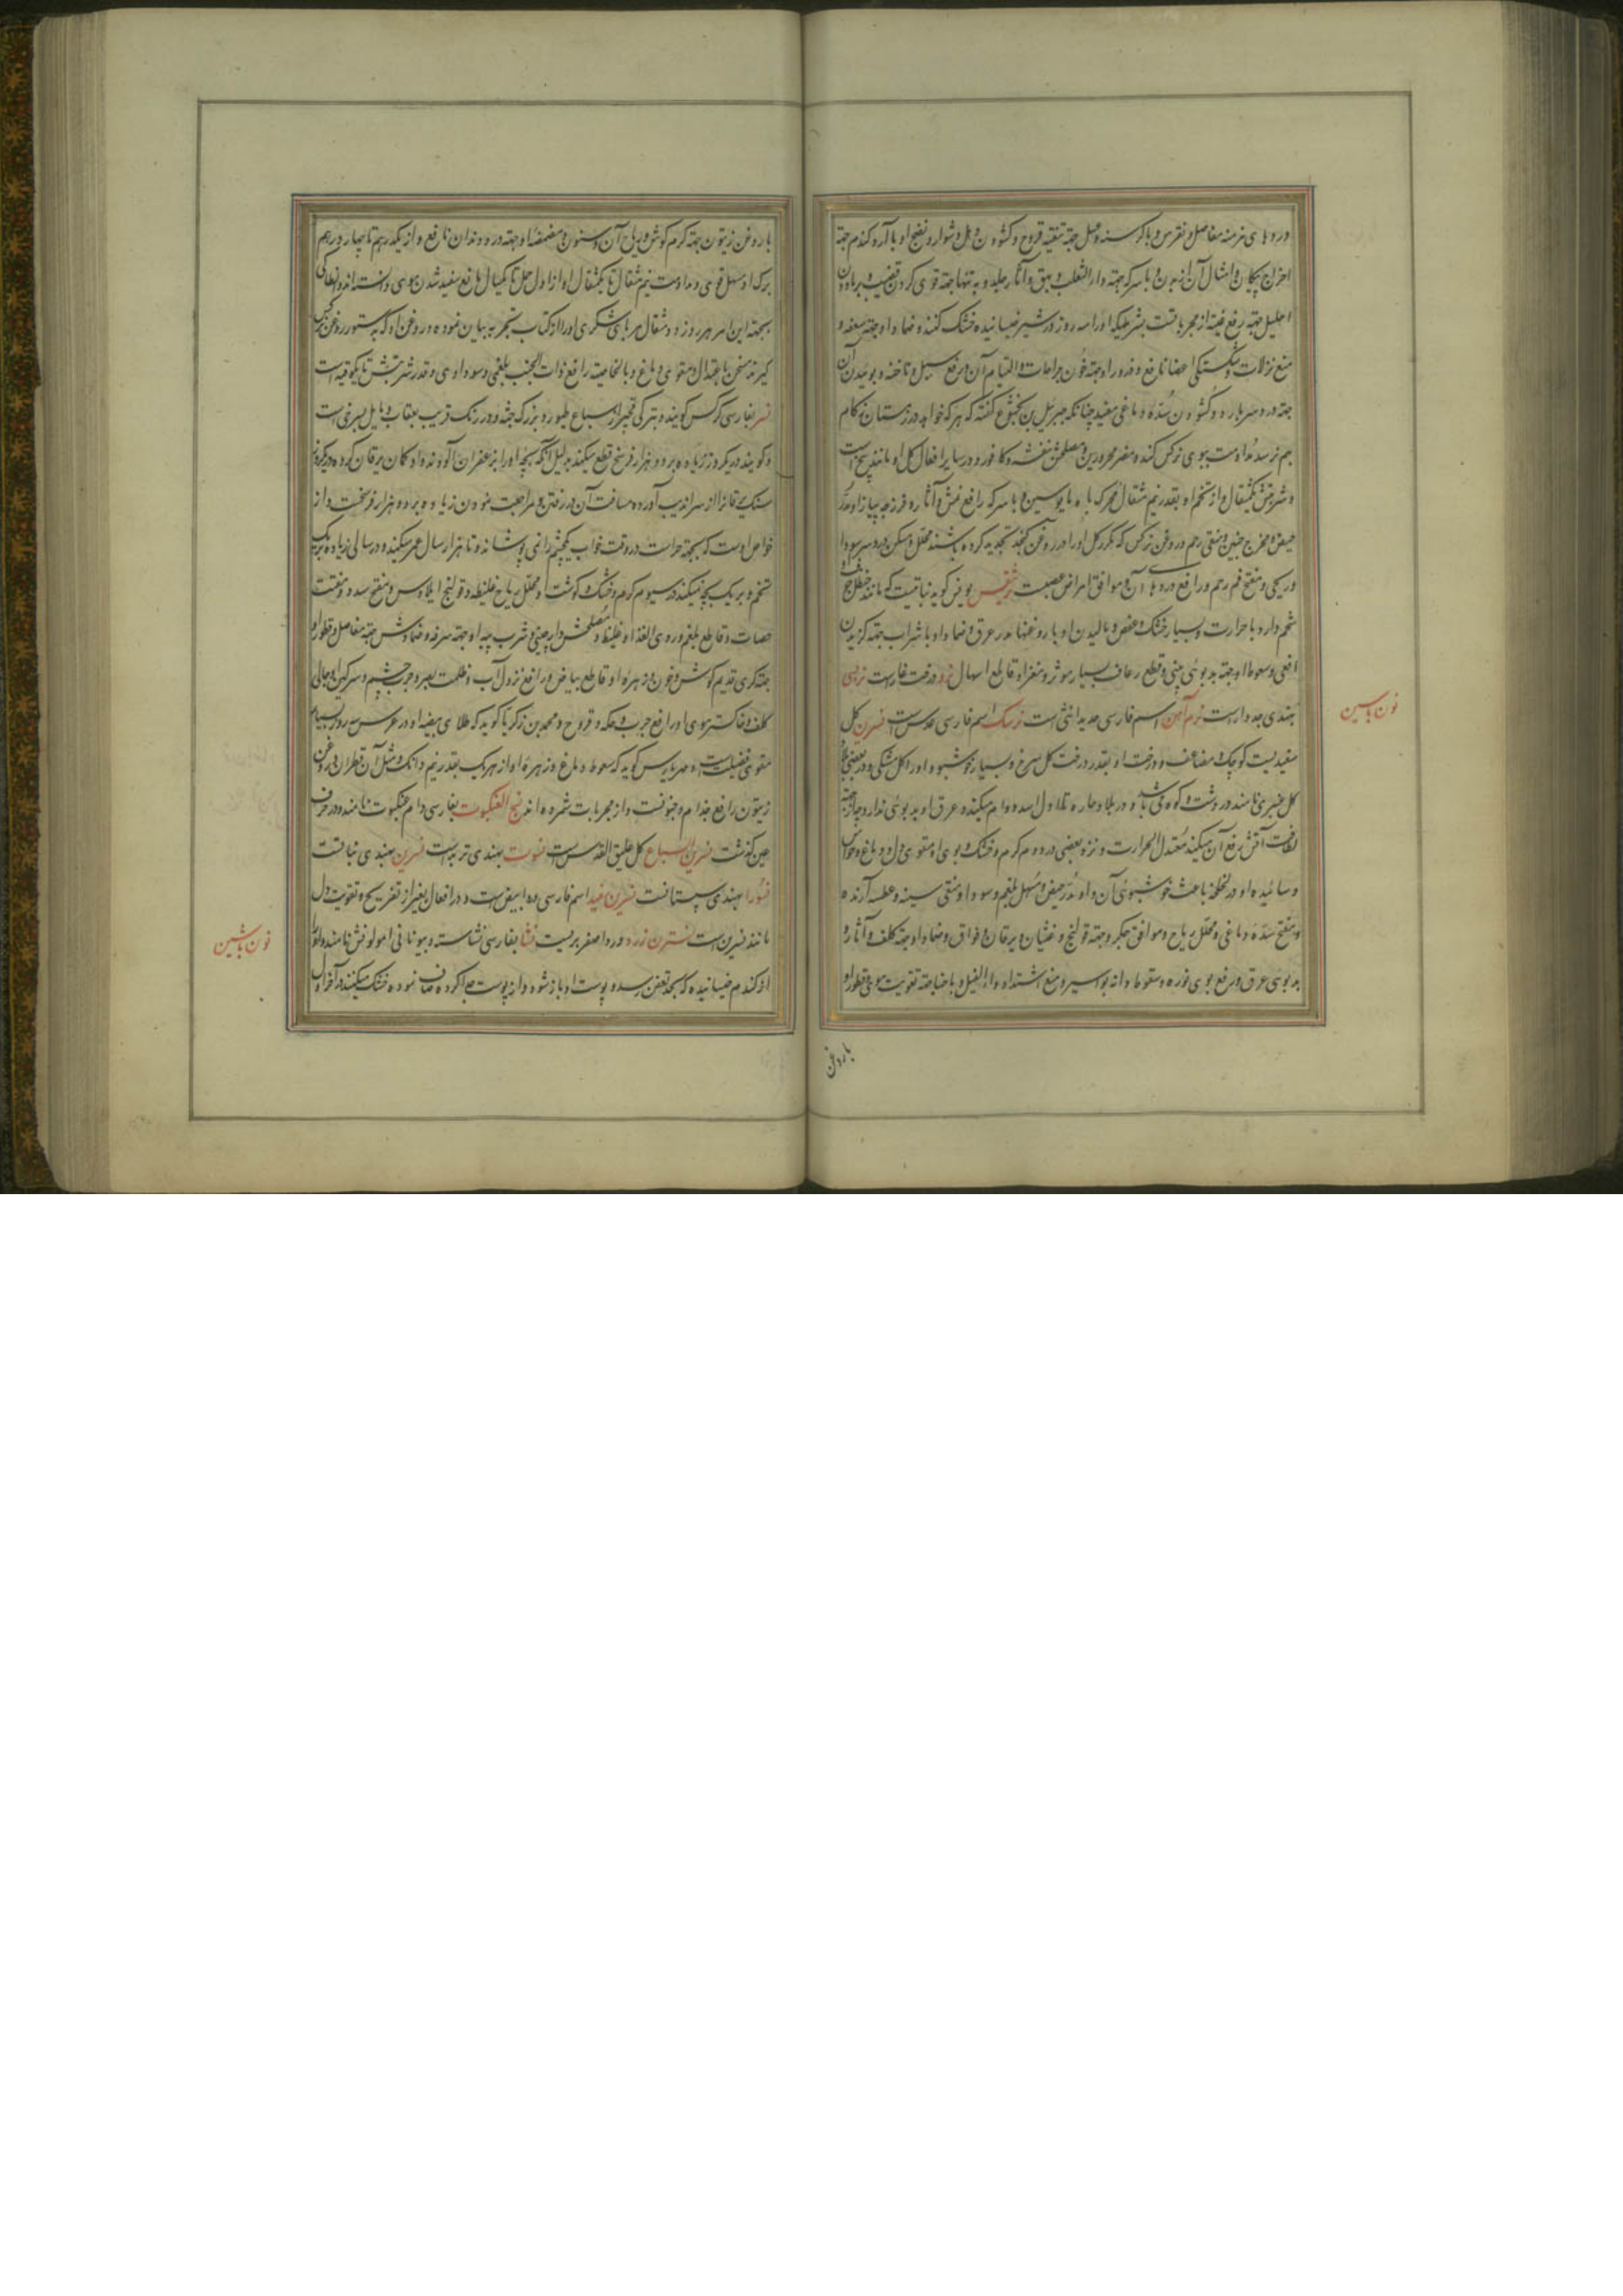 دردهای مزمنه مفاصل و نقرس و با کرسنه و عسل جهته تنقیه قروح و کشودن دمل دشوار و نضج او با آرد کندم جهته
اخراج پیکان و امثال آن از بدن و با سرکه جهته داء الثعلب و بهق و آثار جلد و به تنها جهته قوی کردن قضیب
احلیل جهته رفع عنه از مجربات بشرطیکه او را سه روز در شیر خیسانیده خشک کنند و ضماد او جهته سعفه و
منع نزلات و شکستکی اعضا نافع و ذرور او جهته خون جراحات و التیام آن و رفع سبل و ناخنه و بوئیدن آن
جهته درد سر بارد و کشودن سده دماغی مفید چنانکه جبرئیل بن بختیشوع کفته که هر که خواهد در زمستان زکام
بهم نرسد مداومت ببوی نرکس کند و مضر محرورین و مصلحش بنفشه و کافور و در سایر افعال کل او مانند بیخ است
و شربتش یکمثقال و از تخم او بقدر نیم مثقال محرک باه مایوسین و با سرکه رافع نمش و آثار و فرزجه پیاز او مدر
حیض و مخرج جنین و منقی رحم و روغن نرکس که مکرر کل او را در روغن کنجد تجدید کرده باشند محلل و مسکن درد سر سوداوی
و ریحی و مفتح فم رحم و رافع دردهای آن و موافق امراض عصبست نرقیس بونس کوید نباتیست که مانند حنظل
شحم دارد با حرارت و بسیار خشک و عفص و مالیدن او با روغنها مدر عرق و ضماد او با شراب جهته کزیدن
افعی و سعوط او جهته بدبوئی بینی و قطع رعاف بسیار موثر و مغز او قاطع اسهال نرد درخت غار است نربسی
بهندی جدوار است نرم آهن اسم فارسی حدید انثی است نرسک اسم فارسی عدس است نسرین کل
سفیدیست کوچک و مضاعف و درخت او بقدر درخت کل سرخ و بسیار خوشبو و او را کل مشکی و در بعضی
کل عنبری نامند در دشت و کوه می باشد و در بلاد حاره تا اول اسد دوام میکند و عرق او بوئی ندارد چه از جهته
لطافت آتش رفع آن میکند معتدل الحرارت و نزد بعضی در دوم کرم و خشک و بوی او مقوی دل و دماغ و حواس
و سائیده او در لخلخه باعث خوشبوئی آن و او مدر حیض و مسهل بلغم و سودا و منقی سینه و عطسه آرنده
و مفتح سده دماغی و محلل ریاح و موافق جکر و جهته قولنج و غثیان و یرقان و فواق و ضماد او جهته کلف و آثار و
بدبوئی عرق و رفع بوی نوره و سقوط دانه بواسیر و منع اشتداد داء الفیل و با حنا جهته تقویت موی و قطور او
نون با سین
با روغن
با روغن زیتون جهته کرم کوش و ریاح آن و سنون و مضمضه او جهته درد دندان نافع و از یکدرهم تا چهار درهم
برک او مسهل قوی و مداومت نیم مثقال تا یکمثقال او از اول حمل تا یکسال مانع سفید شدن موی دانسته اند و انطاکی
بجهته این امر هر روز دو مثقال مربای شکری او را از کتاب تجربه بیان نموده و روغن او که بدستور روغن نرکس
کیرند مسخن باعتدال و مقوی دماغ و بالخاصیه رافع ذات الجنب بلغمی و سوداوی و قدر شربتش تا یکوقیه است
نسر بفارسی کرکس کویند و بترکی قجیر از سباع طیور و بزرک جثه و در رنک قریب بعقاب و مایل بسرخی است
و کویند در یکروز زیاده بر دو هزار فرسخ قطع میکند بدلیل آنکه بچه او را بزعفران آلوده او کمان یرقان کرده در یکروز
سنک یرقان را از سراندیب آورده مسافت آن در رفتن و مراجعت نمودن زیاده بر دو هزار فرسخست و از
خواص اوست که بجهته حراست در وقت خواب یکچشم را نمی پوشاند و تا هزار سال عمر میکند و در سالی زیاده بر یک
تخم و بر یک بچه نمیکند در سیوم کرم و خشک و کوشت او محلل ریاح غلیظه و قولنج ایلاوس و مفتح سدد و مفتت
حصات و قاطع بلغم و ردی الغذا و غلیظ و مصلحش دارچینی و شرب پیه او جهته سرفه و ضمادش جهته مفاصل و قطور او
جهته کری قدیم کوش و خون و زهره او قاطع بیاض و رافع نزول آب و ظلمت بصر و جرب چشم و سرکین او جالی
کلف و خاکستر موی او رافع جرب و حکه و قروح و محمد بن زکریا کوید که طلای بیضه او در عرض سه روز بسیار
مقوی قضیبست و مهراریس کوید که سعوط دماغ و زهره او از هر یک بقدر نیم دانک و مثل آن قطران و روغن
زیتون رافع جذام و جنونست و از مجربات شمرده اند نسج العنکبوت بفارسی دام عنکبوت نامند و در حرف
عین کذشت نسرین السباع کل علیق القدس است نسوت بهندی تربد است نسرین بهندی نباتست
نسورا بهندی سپستانست نسرین سفید اسم فارسی ورد ابیض است و در افعال بغیر از تفریح و تقویت دل
مانند نسرین است نسترن زرد ورد اصفر بریست نشا بفارسی نشاسته و بیونانی امولونش نامند و او
از کندم خیسانیده که بحد تعفن رسد و پوست او باز شود و از پوست جدا کرده صاف نموده خشک میکنند در آخر اول
نون با شین